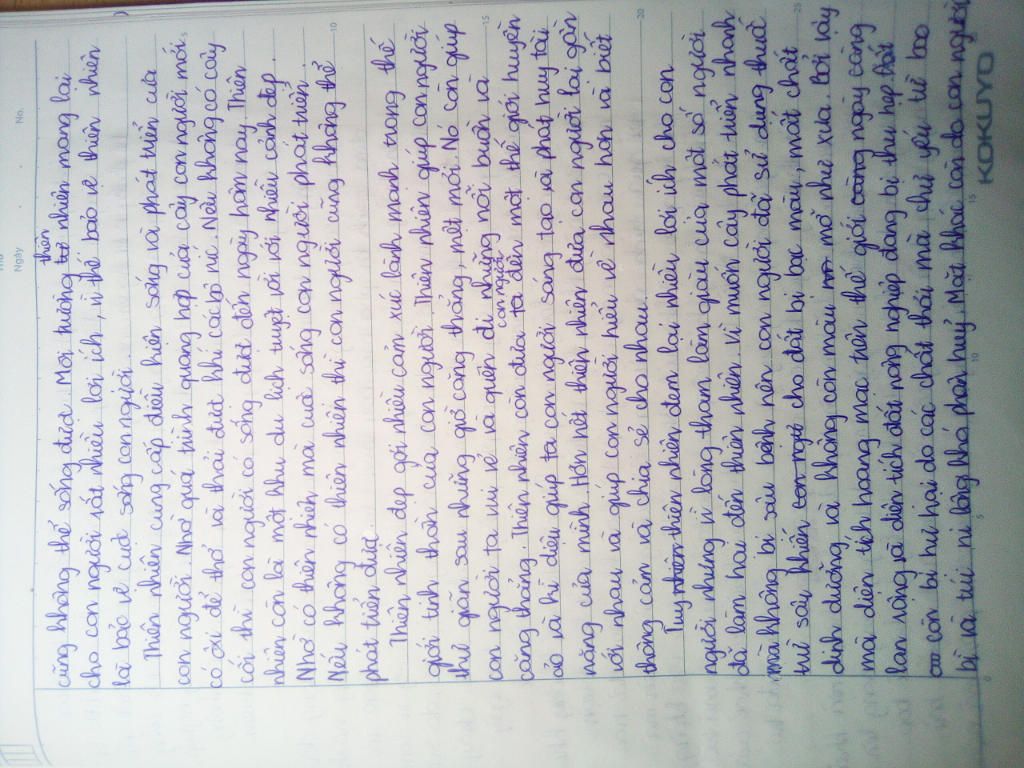 Thứ
Ngày
No.
cũng không thể sống được. Môi trường thiên nhiên mang lại
cho con người rất nhiều lợi ích, vì thế bảo vệ thiên nhiên
là bảo vệ cuộc sống con người.
Thiên nhiên cung cấp điều kiện sống và phát triển của
con người. Nhờ quá trình quang hợp của cây con người mới
có ôxi để thở và thải được khí cácbôníc. Nếu không có cây
cối thì con người có sống được đến ngày hôm nay. Thiên
nhiên còn là một khu du lịch tuyệt vời với nhiều cảnh đẹp.
Nhờ có thiên nhiên mà cuộc sống con người phát triển.
Nếu không có thiên nhiên thì con người cũng không thể
phát triển được.
Thiên nhiên đẹp gợi nhiều cảm xúc lành mạnh trong thế
giới tinh thần của con người. Thiên nhiên giúp con người
thư giãn sau những giờ căng thẳng, mệt mỏi. Nó còn giúp
con người ta vui vẻ và quên đi những nỗi buồn và
căng thẳng. Thiên nhiên còn đưa con người ta đến một thế giới huyền
ảo và kì diệu giúp ta con người sáng tạo và phát huy tài
năng của mình. Hơn nết thiện nhiên đưa con người lại gần
với nhau và giúp con người hiểu về nhau hơn và biết
thông cảm và chia sẻ cho nhau.
Tuy thiên nhiên đem lại nhiều lợi ích cho con
người nhưng vì lòng tham làm giàu của một số người
đã làm hại đến thiên nhiên. Vì muốn cây phát triển nhanh
mà không bị sâu bệnh nên con người đã sử dụng thuốc
trừ sâu khiến cho đất bị bạc màu, mất chất
dinh dưỡng và không còn màu mỡ như xưa. Bởi vậy
mà diện tích hoang mạc trên thế giới ngày càng
lan rộng và diện tích đất nông nghiệp đang bị thu hẹp. Đất
còn bị hủy hoại do các chất thải mà chủ yếu từ bao
bì và túi ni lông khó phân huỷ. Mặt khác còn do con người
5
10
15
20
25
0
5
10
15
KOKUYO